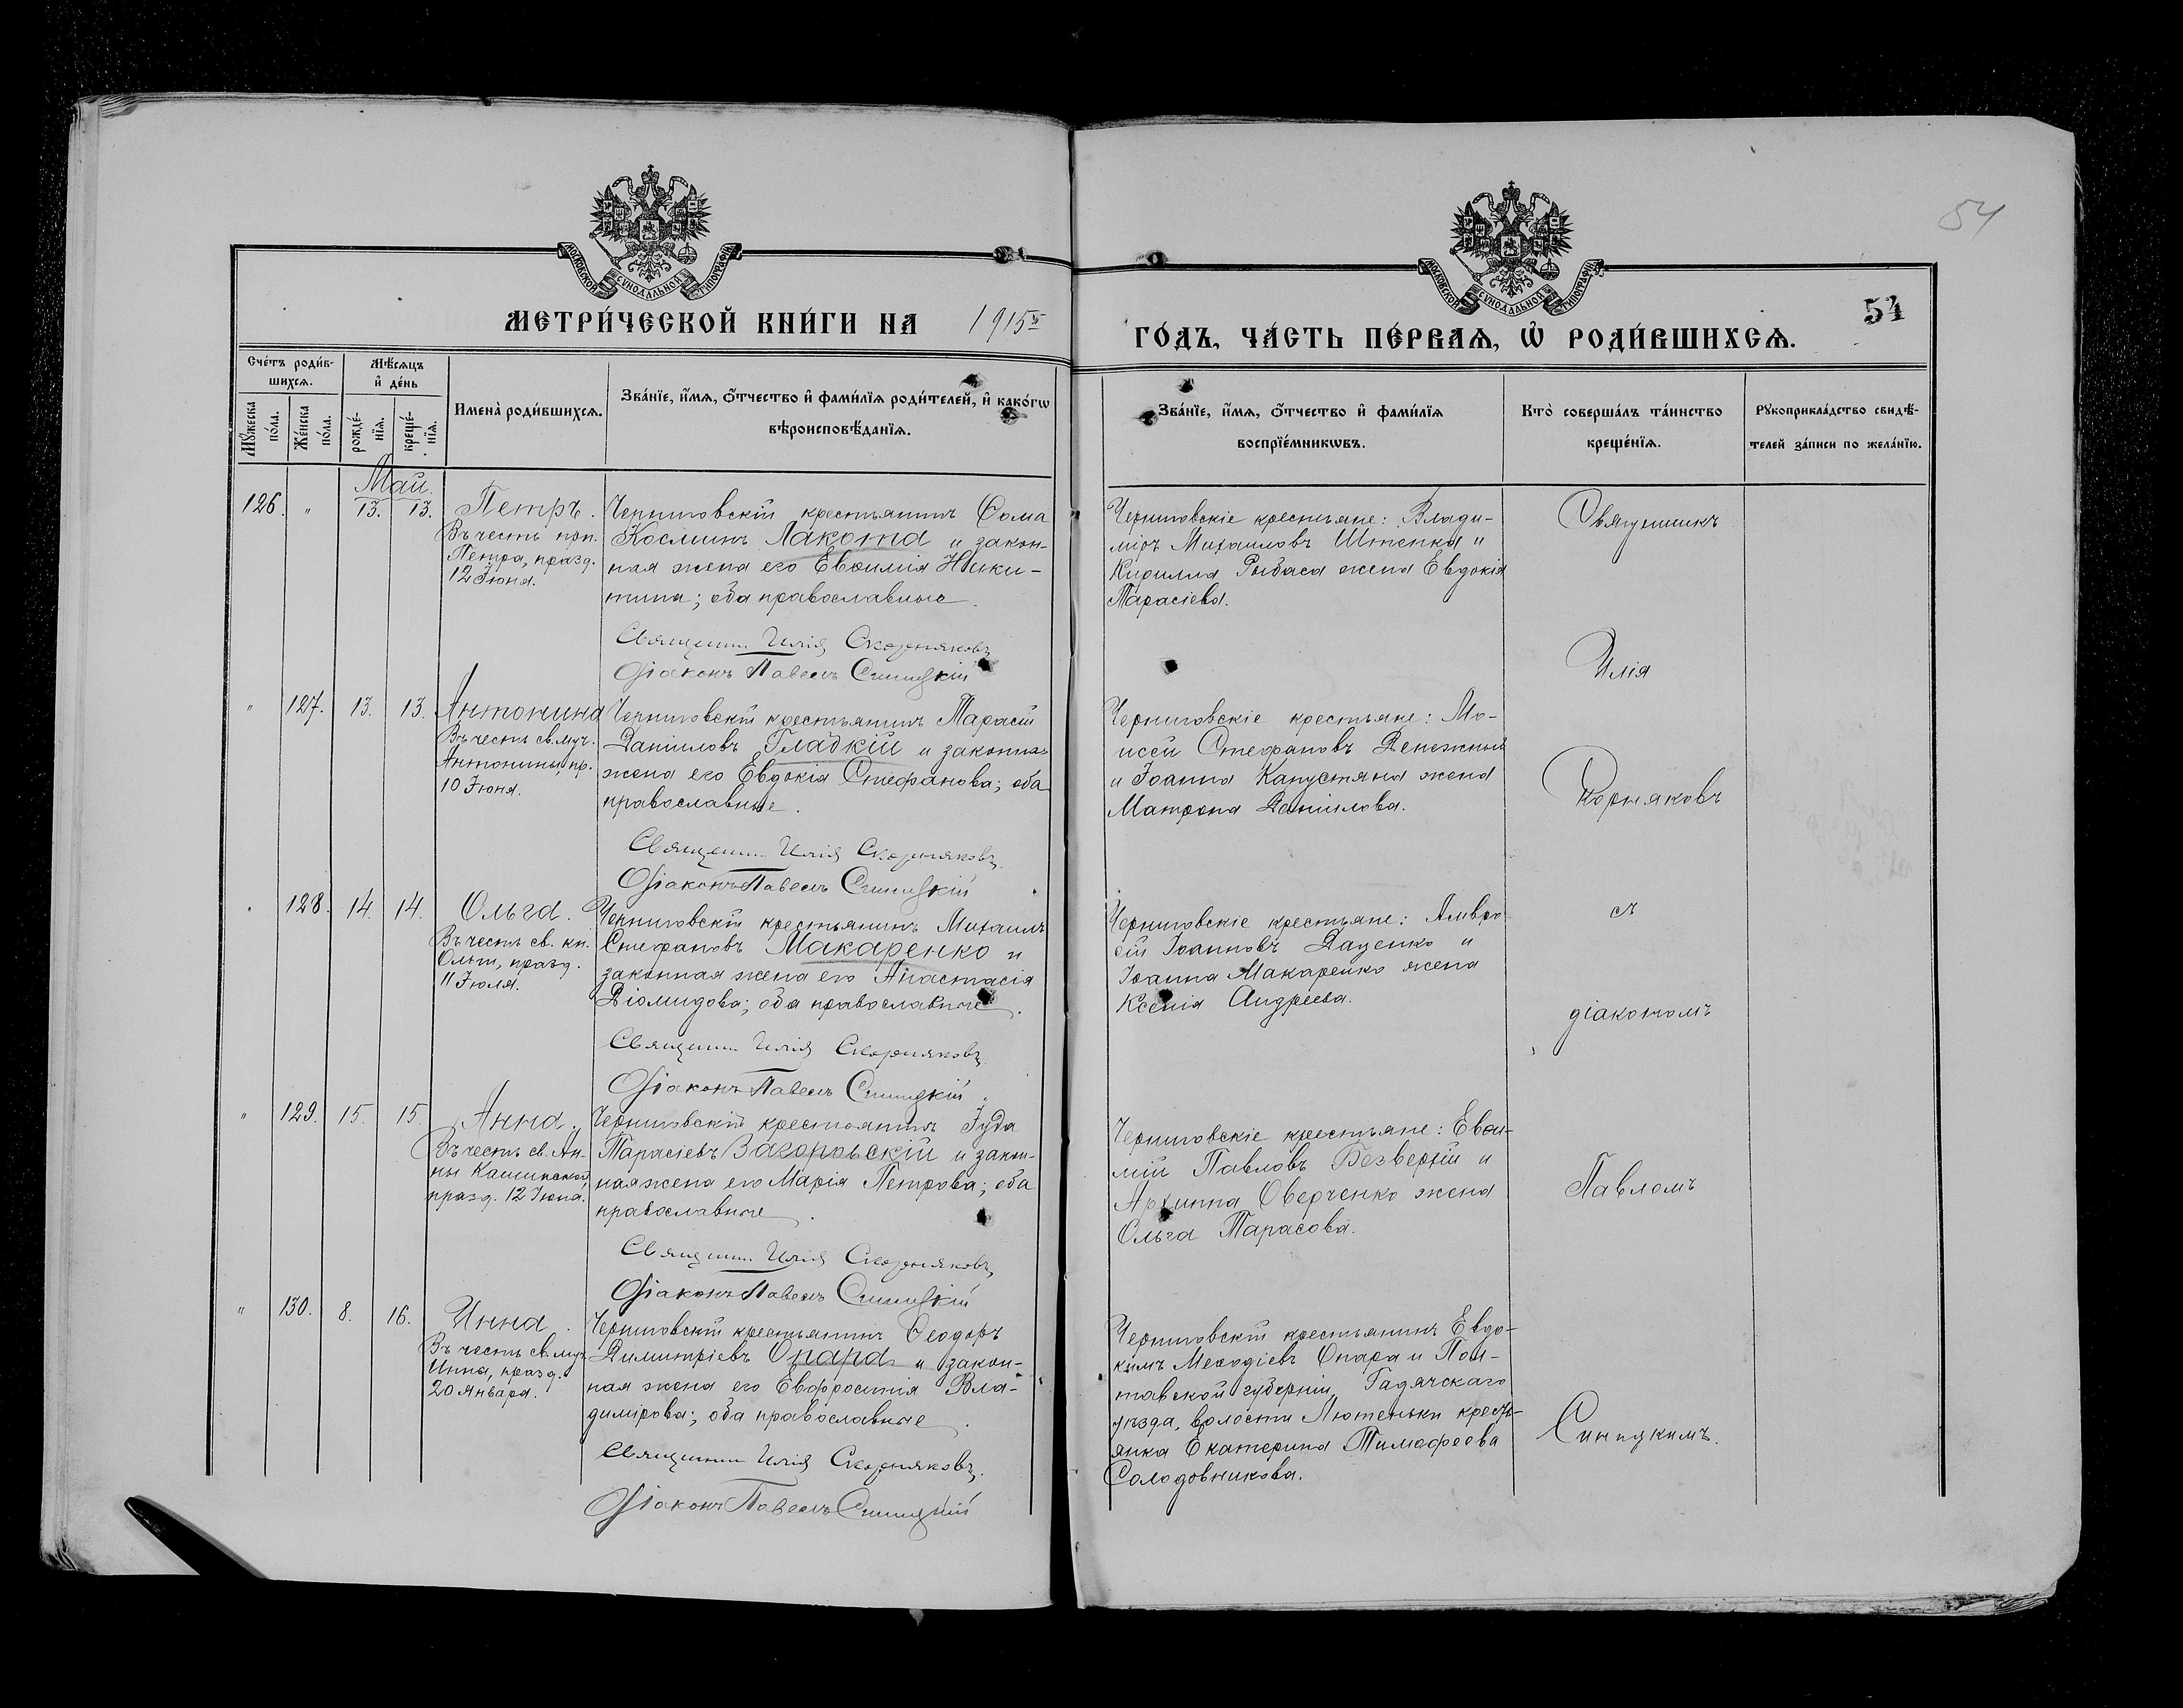 54
МОСКОВСКОЙ СѴНОДАЛЬНОЙ ТИПОГРАФІИ
МОСКОВСКОЙ СѴНОДАЛЬНОЙ ТИПОГРАФІИ
МЕТРИ́ЧЕСКОЙ КНИ́ГИ НА 1915й
ГО́ДЪ, ЧА́СТЬ ПЕ́РВАѦ, Ѽ РОДИ́ВШИХСѦ.
54
Сче́тъ роди́в-
шихсѧ.
Мꙋ́жеска по́ла.
Же́нска по́ла.
Мѣ́сѧцъ
и҆ де́нь
рожде́-
нїѧ.
креще́-
нїѧ.
Имена̀ роди́вшихсѧ.
Зва́нїе, и҆́мѧ, ѻ҆́тчество и҆ фами́лїѧ роди́телей, и҆ како́гѡ
вѣроисповѣ́данїѧ.
Зва́нїе, и҆́мѧ, ѻ҆́тчество и҆ фами́лїѧ
воспрїе́мникѡвъ.
Кто̀ соверша́лъ та́инство
креще́нїѧ.
Рꙋкоприкла́дство свидѣ́-
телей за́писи по жела́нїю.
Май.
126. " 13. 13. Петръ.
Въ честь прп.
Петра, празд.
12 Іюня.
Черниговскій крестьянинъ Ѳома
Косминъ Лакота и закон-
ная жена его Евѳимія Ники-
тина; оба православные.
Священн. Илія Скорняковъ
Діаконъ Павелъ Синицкій
Черниговскіе крестьяне: Влади-
міръ Михаиловъ Штепка и
Кирилла Рыбаса жена Евдокія
Тарасіева.
" 127. 13. 13. Антонина
Въ честь св. муч.
Антонины, пр.
10 Іюня.
Черниговскій крестьянинъ Тарасій
Даніиловъ Гладкій и законная
жена его Евдокія Стефанова; оба
православные.
Священн. Илія Скорняковъ
Діаконъ Павелъ Синицкій
Черниговскіе крестьяне: Мо-
исей Стефановъ Денежный
и Іоанна Капустяна жена
Матрона Даніилова.
" 128. 14. 14. Ольга.
Въ честь св. кн.
Ольги, празд.
11 Іюля.
Черниговскій крестьянинъ Михаилъ
Стефановъ Макаренко и
законная жена его Анастасія
Діомидова; оба православные.
Священн. Илія Скорняковъ
Діаконъ Павелъ Синицкій
Черниговскіе крестьяне: Амвро-
сій Іоанновъ Даценко и
Іоанна Макаренко жена
Ксенія Андреева.
" 129. 15. 15. Анна.
Въ честь св. Ан-
ны Кашинской,
празд. 12 Іюня.
Черниговскій крестьянинъ Іуда
Тарасіевъ Загоровскій и закон-
ная жена его Марія Петрова; оба
православные.
Священн. Илія Скорняковъ
Діаконъ Павелъ Синицкій
Черниговскіе крестьяне: Евѳи-
мій Павловъ Безверхій и
Архиппа Оверченко жена
Ольга Тарасова.
" 130. 8. 16. Инна.
Въ честь св. муч.
Инны, празд.
20 Января.
Черниговскій крестьянинъ Ѳеодоръ
Димитріевъ Опара и закон-
ная жена его Евфросинія Вла-
димірова; оба православные.
Священн. Илія Скорняковъ
Діаконъ Павелъ Синицкій
Черниговскій крестьянинъ Евдо-
кимъ Меѳодіевъ Опара и Пол-
тавской губерніи, Гадячскаго
уѣзда, волости Лютеньки кресть-
янка Екатерина Тимофеева
Солодовникова.
Священникъ
Илія
Скорняковъ
съ
діакономъ
Павломъ
Синицкимъ.